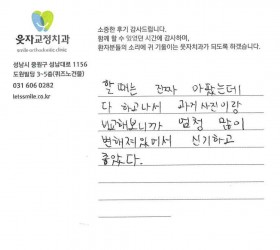 웃자교정치과
smile orthodontic clinic
성남시 중원구 성남대로 1156
도원빌딩 3-5층(퀴즈노건물)
031 606 0282
letssmile.co.kr
소중한 후기 감사드립니다.
함께 할 수 있었던 시간에 감사하며,
환자분들의 소리에 귀 기울이는 웃자치과가 되도록 하겠습니다.
할 때는 진짜 아팠는데
다 하고나서 과거 사진이랑
비교해보니까 엄청 많이
변해져있어서 신기하고
좋았다.